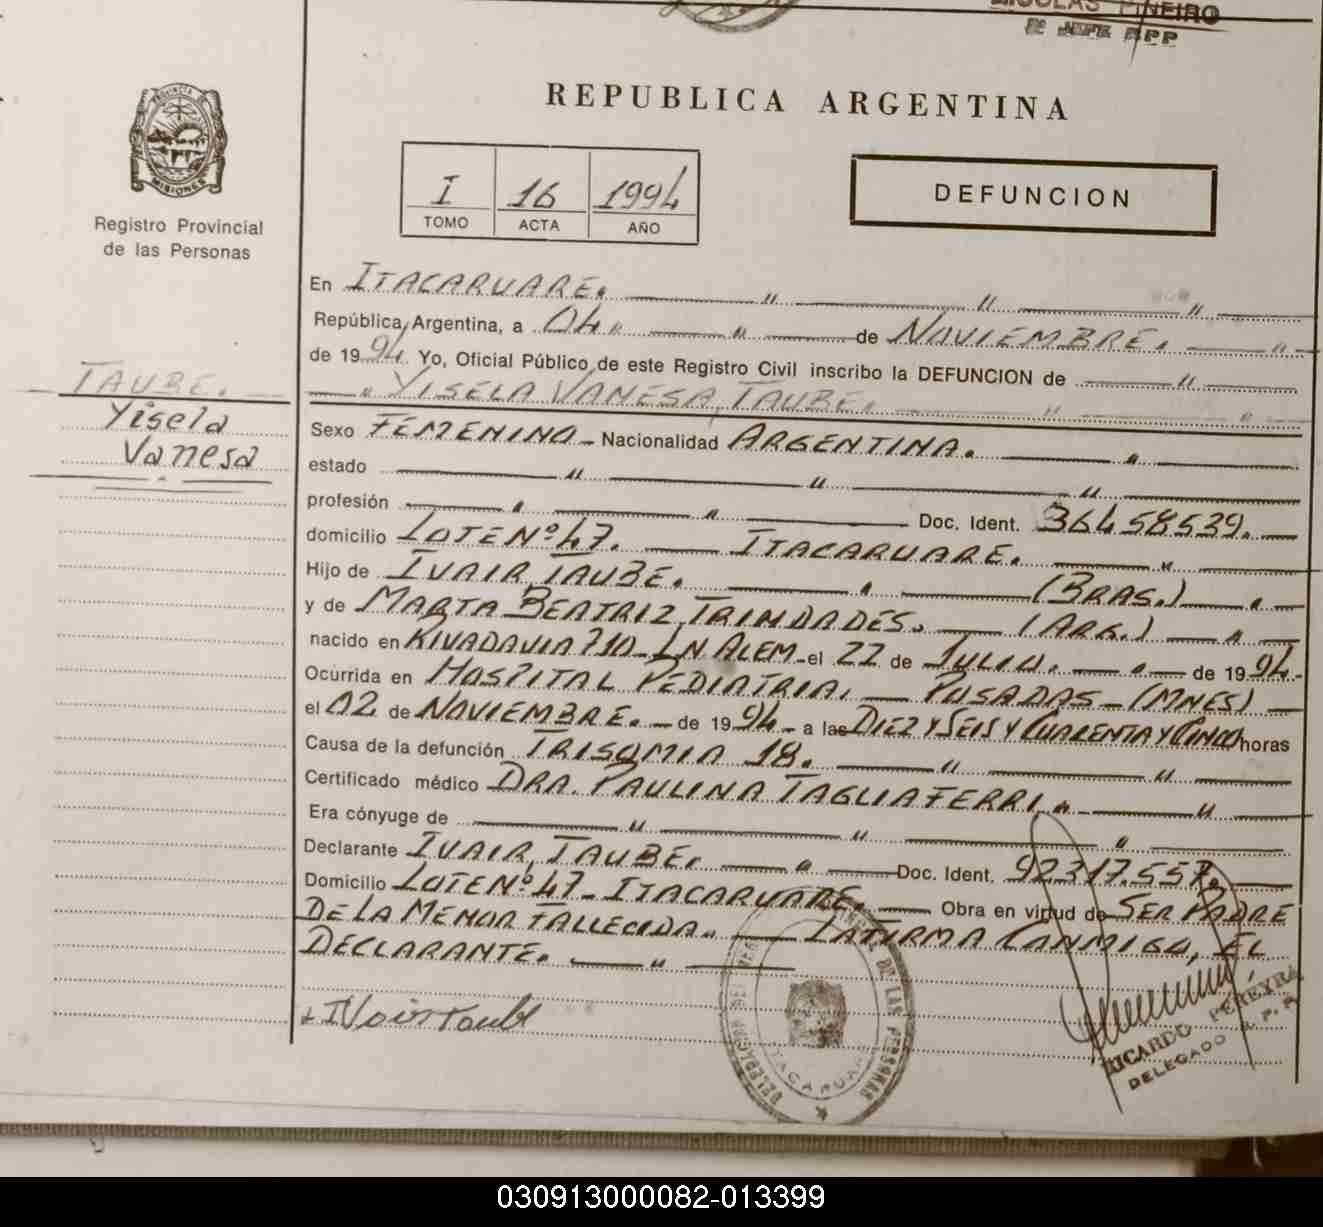 NICOLAS PIÑEIRO
REPUBLICA ARGENTINA
PROVINCIA DE
MISIONES
Registro Provincial
de las Personas
I 16 1994
TOMO ACTA AÑO
DEFUNCION
En ITACARUARE. " " "
República Argentina, a 04 " de NOVIEMBRE. "
de 1994. Yo, Oficial Público de este Registro Civil inscribo la DEFUNCION de "
" YISELA VANESA, TAUBE. " "
TAUBE.
Yisela
Vanesa
Sexo FEMENINO - Nacionalidad ARGENTINA. "
estado " " "
profesión " " Doc. Ident. 36458539.
domicilio LOTE Nº 47. ITACARUARE. "
Hijo de IVAIR, TAUBE. " (BRAS.) "
y de MARTA BEATRIZ, TRINDADES. (ARG.) "
nacido en RIVADAVIA 710 - LN ALEM - el 22 de JULIO. " de 1994.-
Ocurrida en HOSPITAL PEDIATRIA. POSADAS - (MNES)
el 02 de NOVIEMBRE. - de 1994 - a las DIEZ Y SEIS Y CUARENTA Y CINCO horas
Causa de la defunción TRISOMIA 18. " "
Certificado médico DRA. PAULINA TAGLIAFERRI. "
Era cónyuge de " " "
Declarante IVAIR, TAUBE. " Doc. Ident. 92317.557.
Domicilio LOTE Nº 47 - ITACARUARE. Obra en virtud de SER PADRE
DE LA MENOR FALLECIDA. LA FIRMA CONMIGO, EL
DECLARANTE. "
+ IVair Taube
DE LAS PERSONAS
ITACARUARE
RICARDO PEREYRA
DELEGADO R.P.P.
030913000082-013399